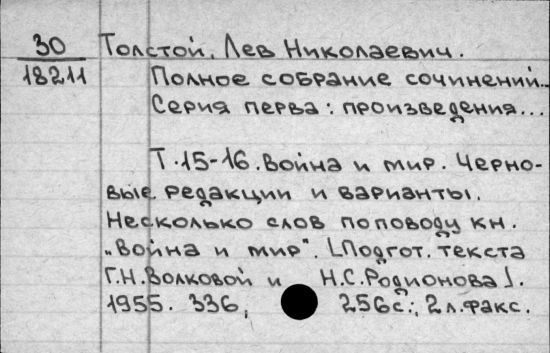 30 Толстой, Лев Николаевич.
18211 Полное собрание сочинений...
Серия перва: произведения...
Т.15-16. Война и мир. Черно-
вые редакции и варианты.
Несколько слов по поводу кн.
"Война и мир". [Подгот. текста
Г.Н.Волковой и Н.С.Родионова].
1955. 336, 256с.; 2л.факс.